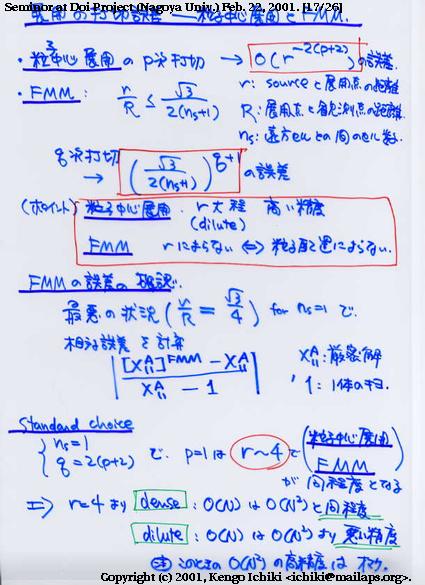 Seminor at Doi Project (Nagoya Univ.) Feb. 22, 2001. [17/26]
の打切誤差 — 粒子中心展開とFMM.
・粒子中心展開のp次打切 → O(r^{-2(p+2)}) の誤差.
・FMM: r/R ≤ √3/2(ns+1)
r: sourceと展開点の距離
R: 展開点と観測点の距離
ns: 遠方cellとの間のcell数
q次打切
→ (√3/2(ns+1))^{q+1} の誤差
(ポイント) 粒子中心展開. r大程 高い精度
(dilute)
FMM rによらない ⇔ 粒子配置によらない.
FMMの誤差の確認.
最悪の状況 (r/R = √3/4) for ns=1 で.
相対誤差を計算
| [X^A_11]^FMM - X^A_11 / X^A_11 - 1 |
X^A_11: 厳密解
1: 1体の
Standard choice
{ ns=1
q=2(p+2)
で. p=1は r~4で (粒子中心展開
FMM)
が同程度となる
⇒ r=4より dense: O(N)はO(N²)と同程度
dilute: O(N)はO(N²)より悪い精度
このときのO(N²)の高精度は
Copyright (c) 2001, Kengo Ichiki <ichiki@mailaps.org>.